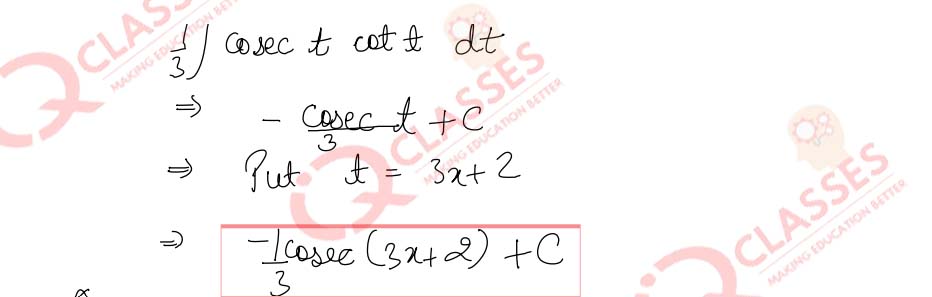 1/3 ∫ cosec t cot t dt
⇒ - cosec t/3 + C
⇒ Put t = 3x+2
⇒ -1/3 cosec (3x+2) + C
CLASSES
MAKING EDUCATION BETTER
CLASSES
MAKING EDUCATION BETTER
CLASSES
MAKING EDUCATION BETTER